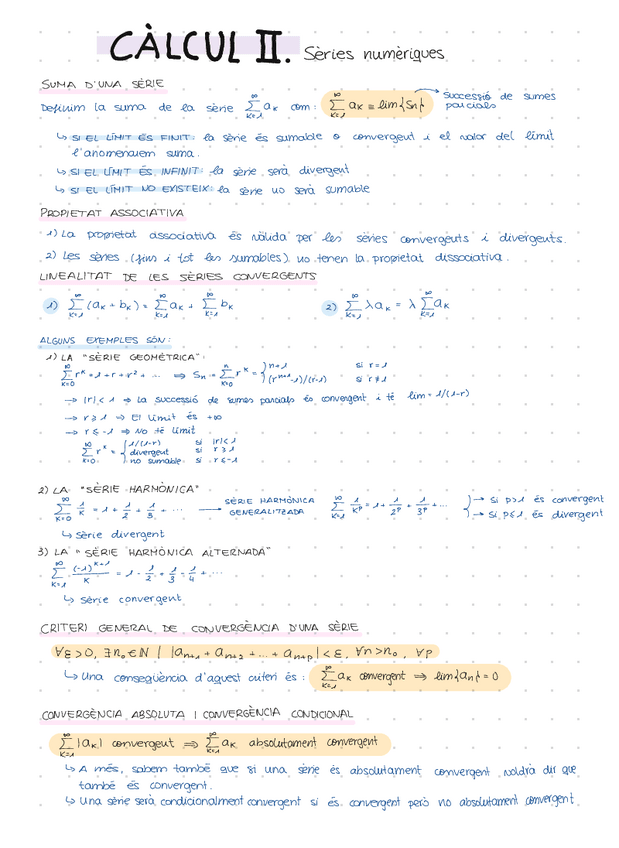 CÀLCUL II. Sèries numèriques
SUMA D'UNA SÈRIE
Definim la suma de la sèrie ∑_{k=1}^{∞} a_k com: ∑_{k=1}^{∞} a_k = lim{S_n} → Successió de sumes parcials
↳ SI EL LÍMIT ÉS FINIT: la sèrie és sumable o convergent i el valor del límit
l'anomenem suma.
↳ SI EL LÍMIT ÉS INFINIT: la sèrie serà divergent
↳ SI EL LÍMIT NO EXISTEIX: la sèrie no serà sumable
PROPIETAT ASSOCIATIVA
1) La propietat associativa és vàlida per les sèries convergents i divergents.
2) Les sèries (fins i tot les sumables) no tenen la propietat dissociativa.
LINEALITAT DE LES SÈRIES CONVERGENTS
1) ∑_{k=1}^{∞} (a_k + b_k) = ∑_{k=1}^{∞} a_k + ∑_{k=1}^{∞} b_k 2) ∑_{k=1}^{∞} λa_k = λ ∑_{k=1}^{∞} a_k
ALGUNS EXEMPLES SÓN:
1) LA "SÈRIE GEOMÈTRICA":
∑_{k=0}^{∞} r^k = 1 + r + r² + ... ⇒ S_n = ∑_{k=0}^{n} r^k = { n+1 si r = 1
(r^{n+1} - 1)/(r-1) si r ≠ 1
→ |r| < 1 ⇒ La successió de sumes parcials és convergent i té lim = 1/(1-r)
→ r ≥ 1 ⇒ El límit és +∞
→ r ≤ -1 ⇒ No té límit
∑_{k=0}^{∞} r^k = { 1/(1-r) si |r| < 1
divergent si r ≥ 1
no sumable si r ≤ -1
2) LA "SÈRIE HARMÒNICA"
∑_{k=0}^{∞} 1/k = 1 + 1/2 + 1/3 + ... → SÈRIE HARMÒNICA GENERALITZADA ∑_{k=0}^{∞} 1/k^p = 1 + 1/2^p + 1/3^p + ... { → Si p>1 és convergent
→ Si p≤1 és divergent
↳ Sèrie divergent
3) LA "SÈRIE HARMÒNICA ALTERNADA"
∑_{k=1}^{∞} (-1)^{k+1}/k = 1 - 1/2 + 1/3 - 1/4 + ...
↳ Sèrie convergent
CRITERI GENERAL DE CONVERGÈNCIA D'UNA SÈRIE
∀ε>0, ∃n₀∈ℕ | |a_{n+1} + a_{n+2} + ... + a_{n+p}| < ε, ∀n>n₀, ∀p
↳ Una conseqüència d'aquest criteri és: ∑_{k=1}^{∞} a_k convergent ⇒ lim{a_n} = 0
CONVERGÈNCIA ABSOLUTA I CONVERGÈNCIA CONDICIONAL
∑_{k=1}^{∞} |a_k| convergent ⇒ ∑_{k=1}^{∞} a_k absolutament convergent
↳ A més, sabem també que si una sèrie és absolutament convergent voldrà dir que
també és convergent.
↳ Una sèrie serà condicionalment convergent si és convergent però no absolutament convergent.